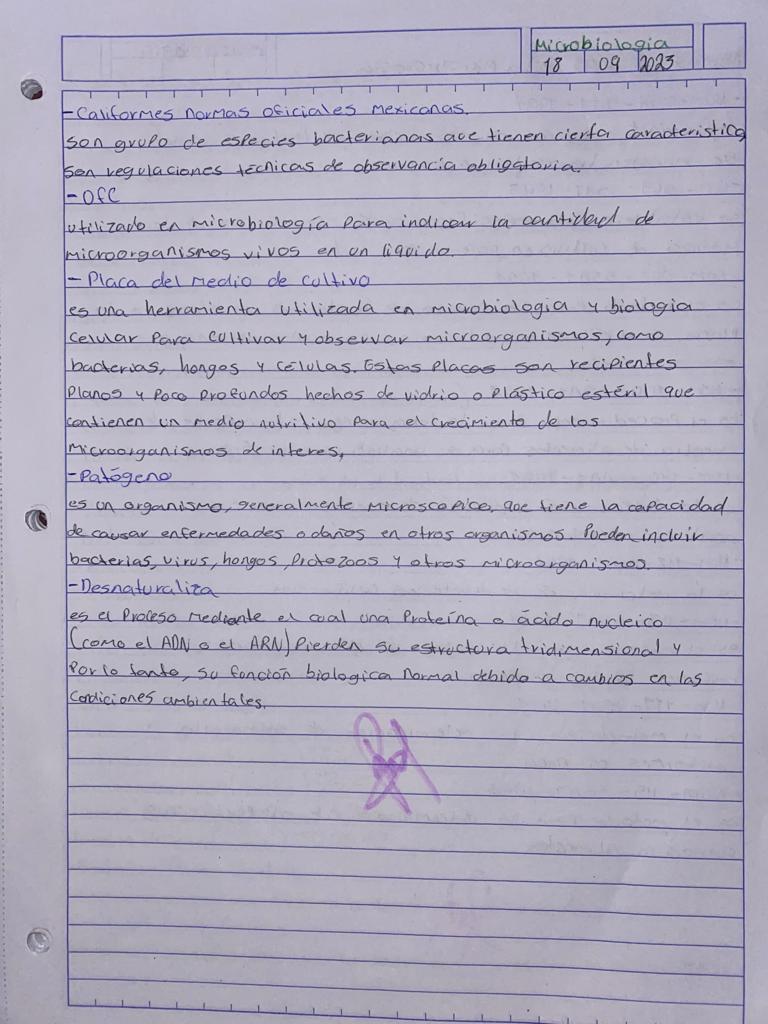 Microbiologia
18 09 2023
-Califormes normas oficiales Mexicanas.
son grupo de especies bacterianas que tienen cierta caracteristica
son regulaciones técnicas de observancia obligatoria.
-Ofc
utilizado en microbiología para indicar la cantidad de
microorganismos vivos en un liquido.
-Placa del medio de cultivo
es una herramienta utilizada en microbiologia y biologia
celular para cultivar y observar microorganismos, como
bacterias, hongos y células. Estas placas son recipientes
planos y poco profundos hechos de vidrio o plástico estéril que
contienen un medio nutritivo para el crecimiento de los
microorganismos de interes,
-Patógeno
es un organismo, generalmente microscopico, que tiene la capacidad
de causar enfermedades o daños en otros organismos. Pueden incluir
bacterias, virus, hongos, protozoos y otros microorganismos.
-Desnaturaliza
es el proceso mediante el cual una proteína o ácido nucleico
(como el ADN o el ARN) pierden su estructura tridimensional y
por lo tanto, su función biologica normal debido a cambios en las
condiciones ambientales.